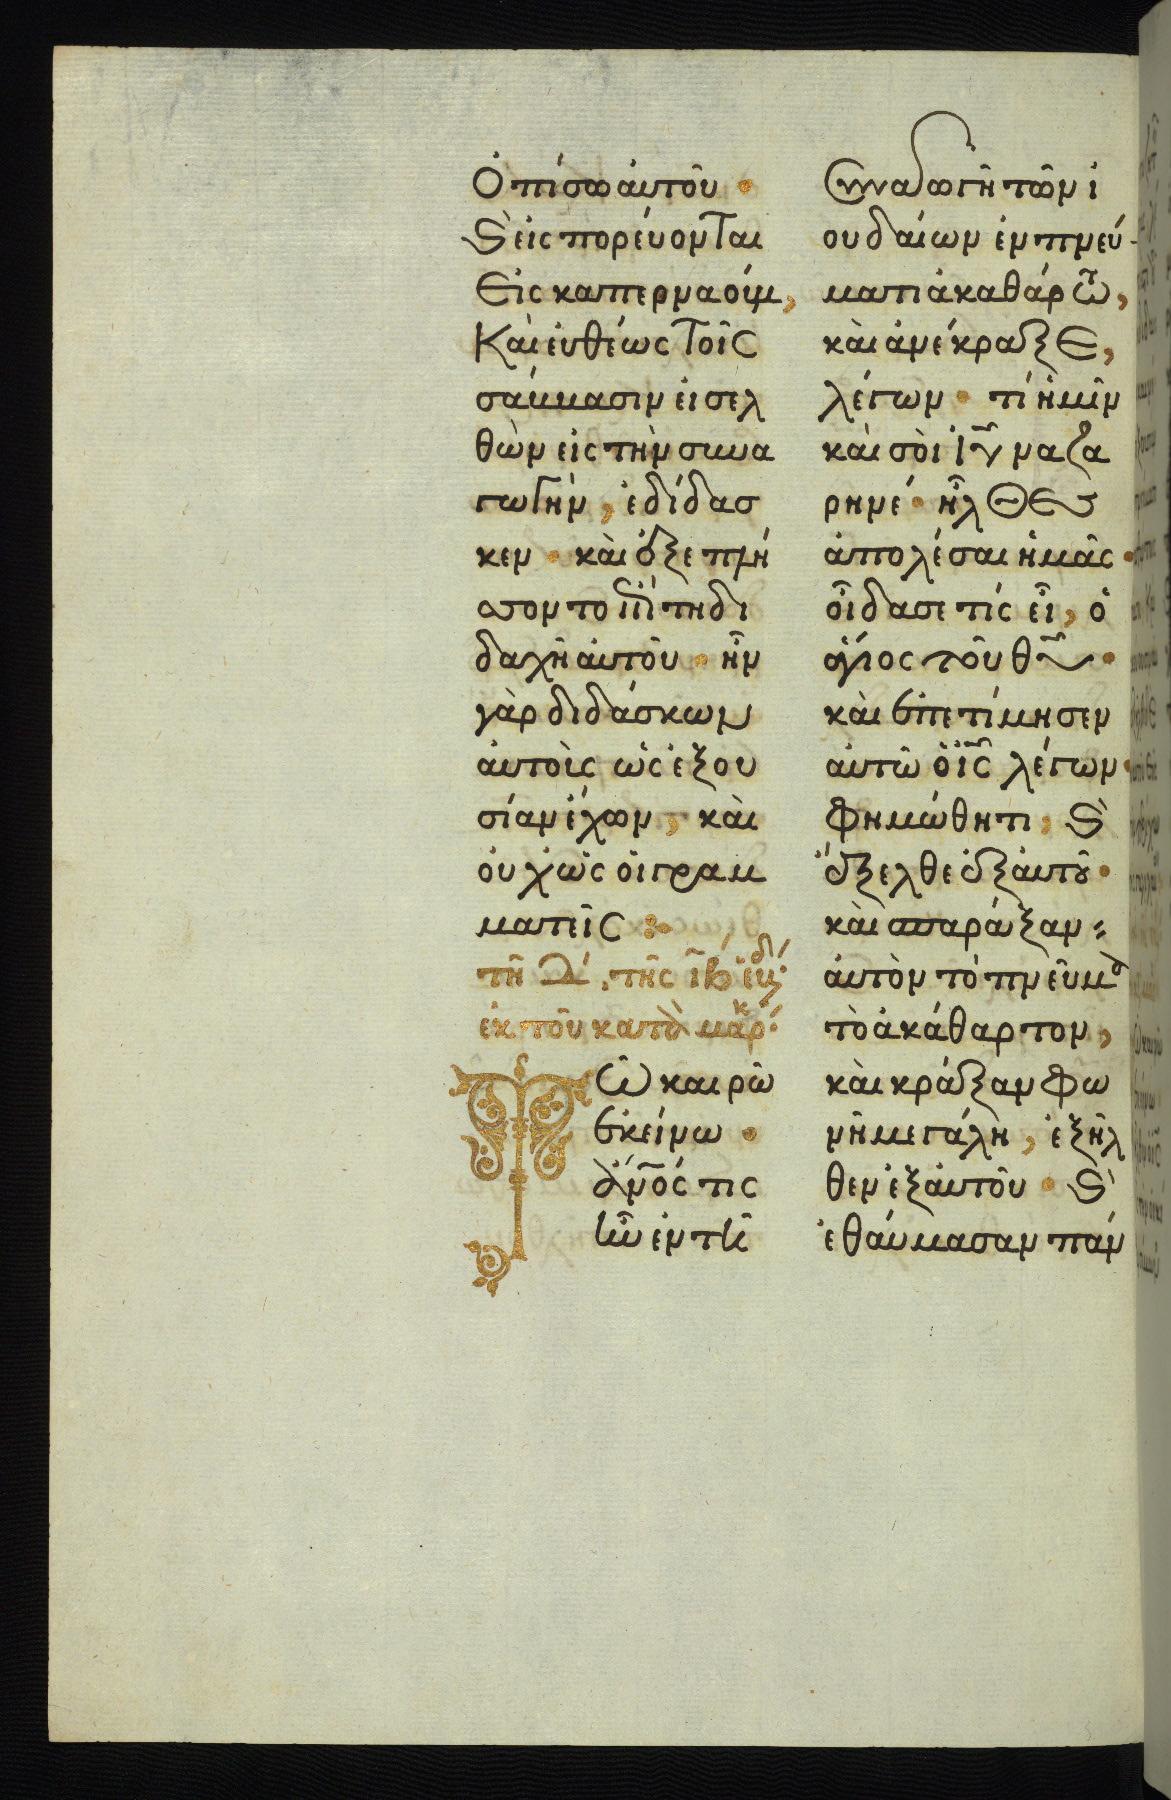 ὀπίσω αὐτοῦ ·
Ϛ̀ εἰσπορεύονται
εἰς καπερναούμ,
Καὶ εὐθέως τοῖς
σάββασιν εἰσελ
θὼν εἰς τὴν συνα
γωγὴν, ἐδίδασ
κεν · καὶ ἐξεπλή
σσοντο ἐπὶ τῆ δι
δαχῆ αὐτοῦ · ἦν
γὰρ διδάσκων
αὐτοὺς ὡς ἐξου
σίαν ἔχων, καὶ
οὐχ ὡς οἱ γραμ
ματεῖς
τῆ δ΄, τῆς ιβ ἑβδ΄
ἐκ τοῦ κατὰ μάρκ·
Τῶ καιρῶ
ἐκείνω ·
ἀν̅ος τις
ἦν ἐν τῆ
συναγωγῆ τῶν ἰ
ουδαίων ἐν πνεύ-
ματι ἀκαθάρτω,
καὶ ἀνέκραξε,
λέγων · τί ἡμῖν
καὶ σοὶ ἰυ̅ ναζα
ρηνέ · ἦλθες
ἀπολέσαι ἡμᾶς ·
οἶδα σε τίς εἶ, ὁ
ἅγιος τοῦ θυ̅ ·
καὶ ἐπετίμησεν
αὐτῶ ὁ ις̅ λέγων ·
φημώθητι, Ϛ̀
ἔξελθε ἐξ αὐτοῦ ·
καὶ σπαράξαν
αὐτὸν τὸ πνεῦμα
τὸ ἀκάθαρτον,
καὶ κράξαν φω
νῆ μεγάλη, ἐξῆλ
θεν ἐξ αὐτοῦ · Ϛ̀
ἐθαύμασαν πάν